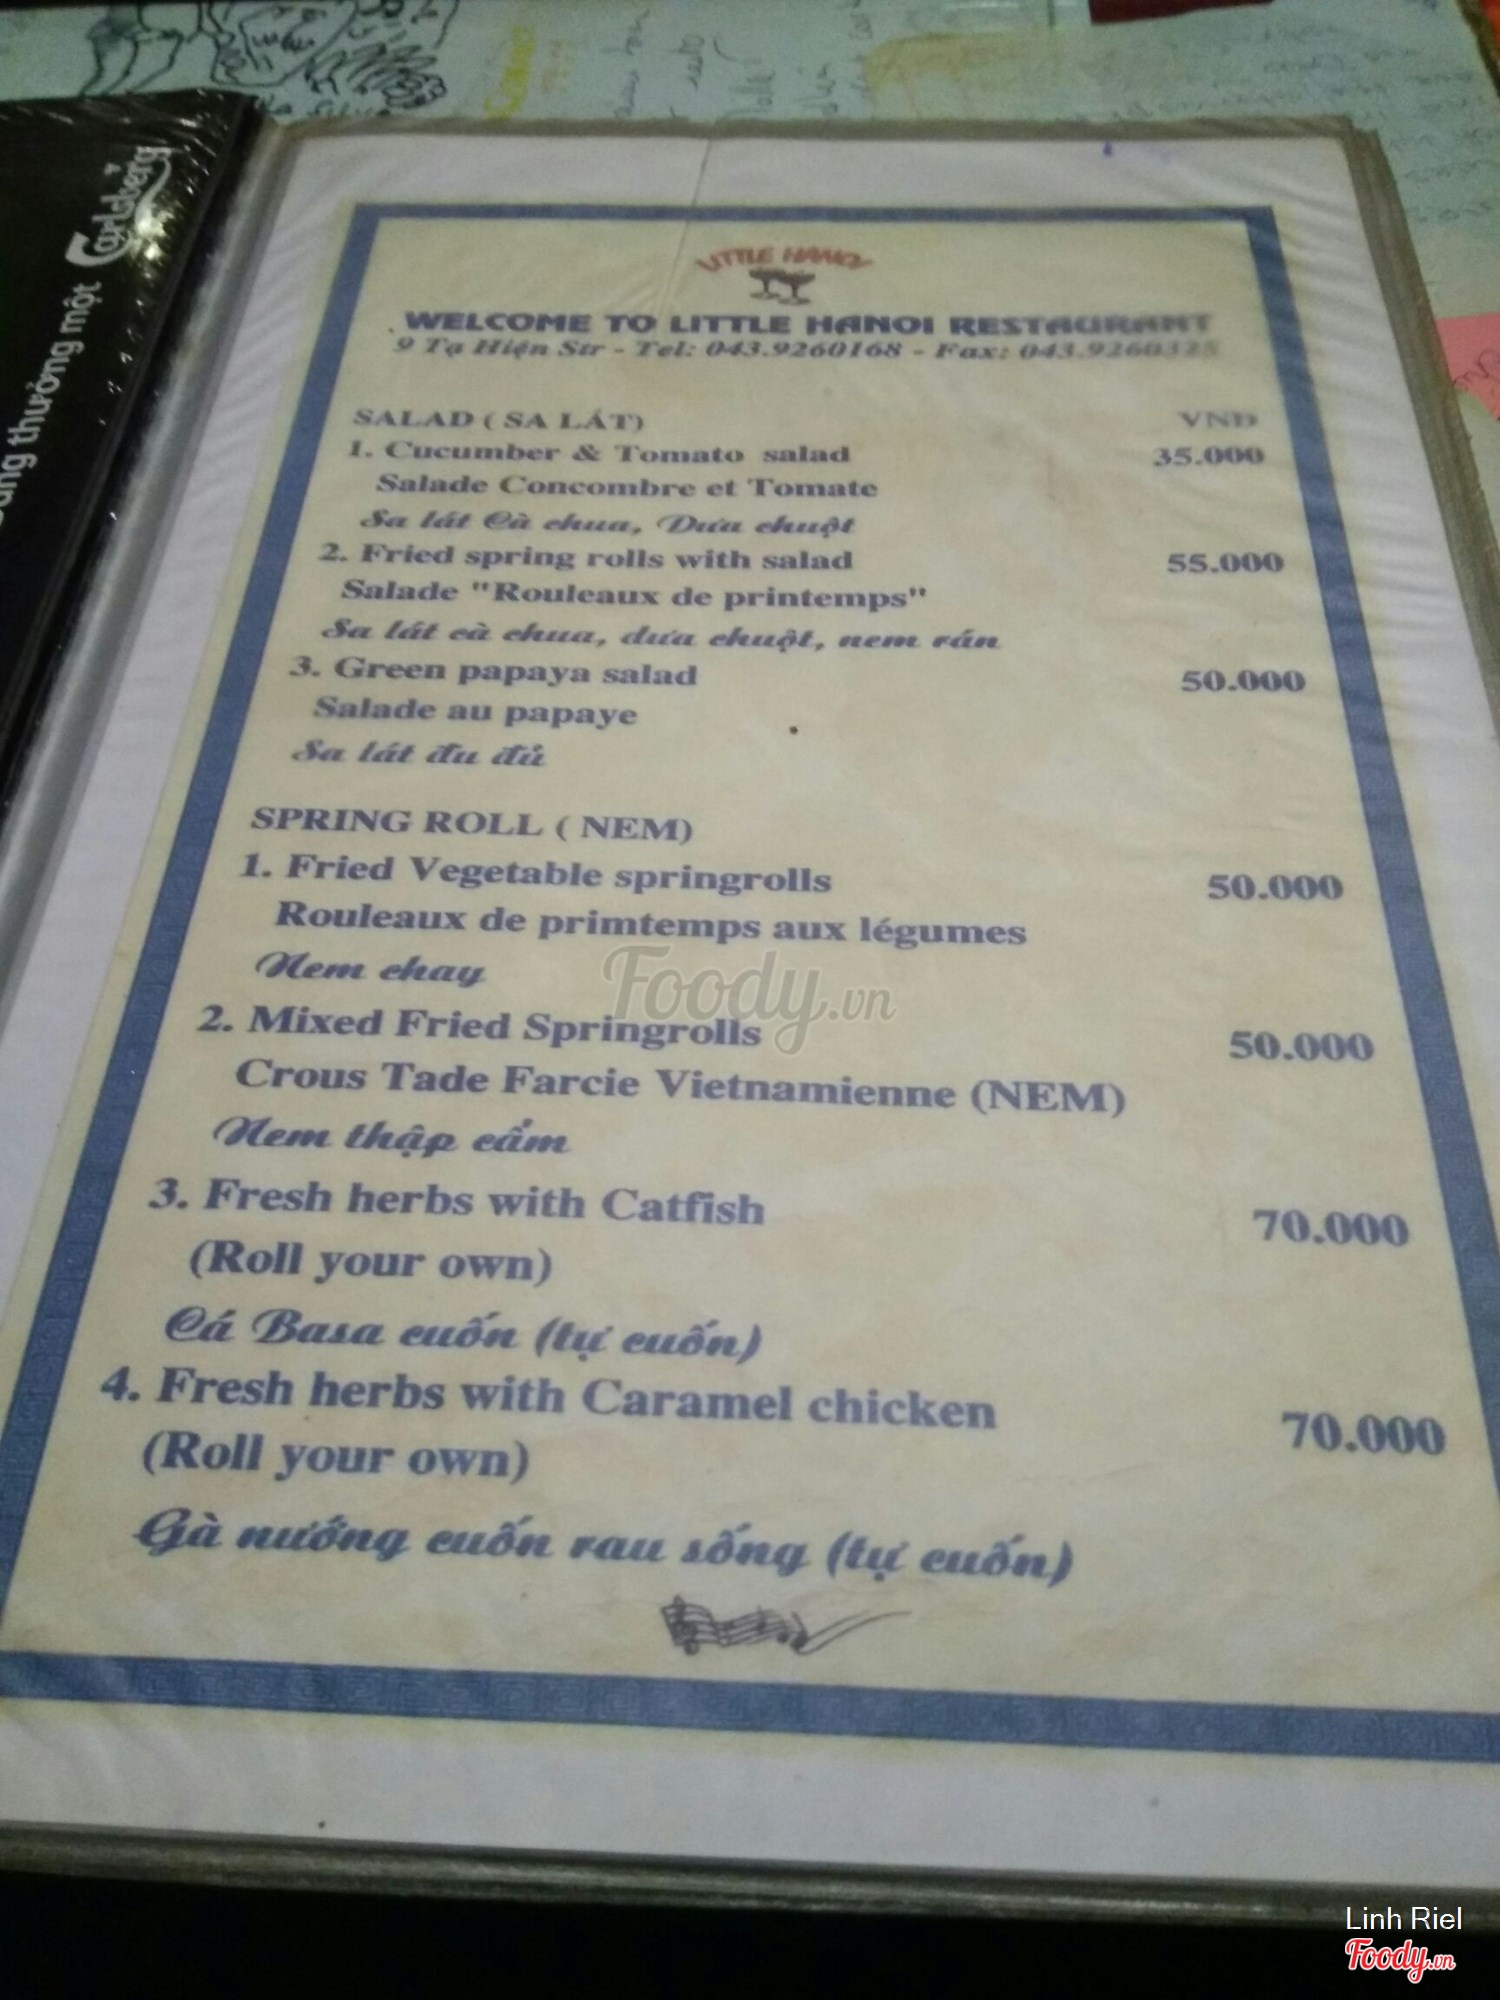 Carlsberg
thưởng một
LITTLE HANOI
WELCOME TO LITTLE HANOI RESTAURANT
9 Tạ Hiện Str - Tel: 043.9260168 - Fax: 043.9260325
SALAD ( SA LÁT) VNĐ
1. Cucumber & Tomato salad 35.000
Salade Concombre et Tomate
Sa lát Cà chua, Dưa chuột
2. Fried spring rolls with salad 55.000
Salade "Rouleaux de printemps"
Sa lát cà chua, dưa chuột, nem rán
3. Green papaya salad 50.000
Salade au papaye
Sa lát đu đủ
SPRING ROLL ( NEM)
1. Fried Vegetable springrolls 50.000
Rouleaux de primtemps aux légumes
Nem chay
2. Mixed Fried Springrolls 50.000
Crous Tade Farcie Vietnamienne (NEM)
Nem thập cẩm
3. Fresh herbs with Catfish 70.000
(Roll your own)
Cá Basa cuốn (tự cuốn)
4. Fresh herbs with Caramel chicken 70.000
(Roll your own)
Gà nướng cuốn rau sống (tự cuốn)
Foody.vn
Linh Riel
Foody.vn